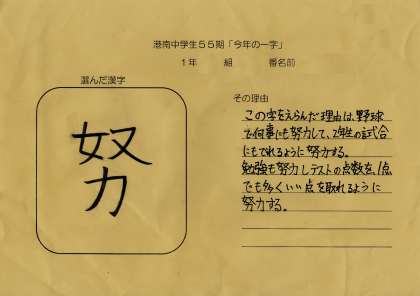 港南中学生５５期「今年の一字」
１年　組　番名前
選んだ漢字
努
その理由
この字をえらんだ理由は、野球
で何事にも努力して、2年生の試合
にもでれるように努力する。
勉強も努力しテストの点数を、1点
でも多くいい点を取れるように
努力する。